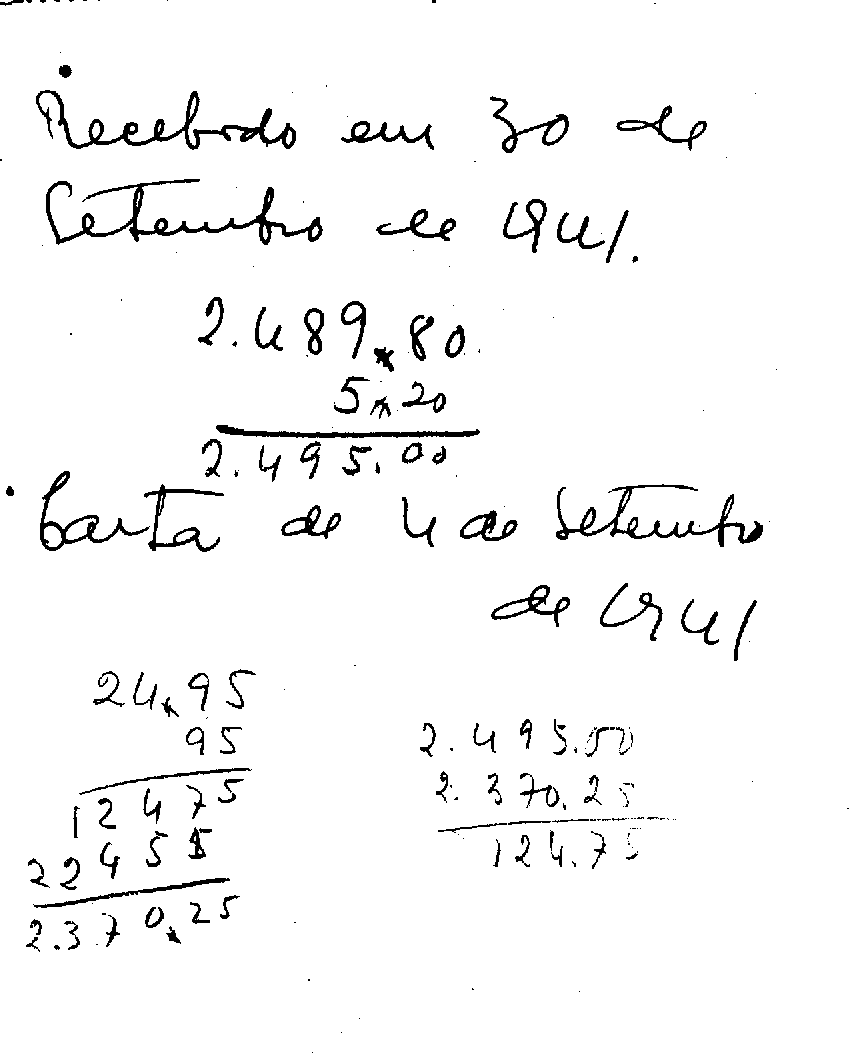 Recebido em 30 de
Setembro de 1941.
2.489,80
5,20
2.495.00
Carta de 4 de Setembro
de 1941
24,95
95
12475
22455
2.370,25
2.495.00
2.370.25
124.75